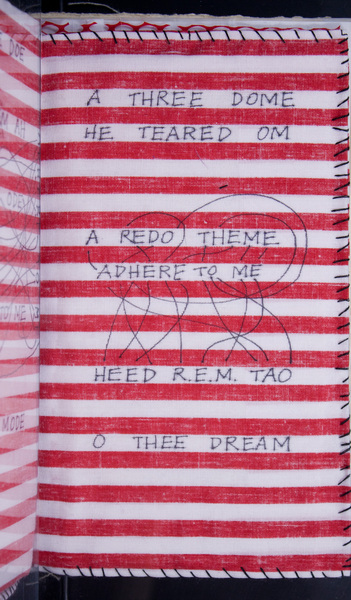 A THREE DOME
HE TEARED OM
A REDO THEME
ADHERE TO ME
HEED R.E.M. TAO
O THEE DREAM
DOE
MODE